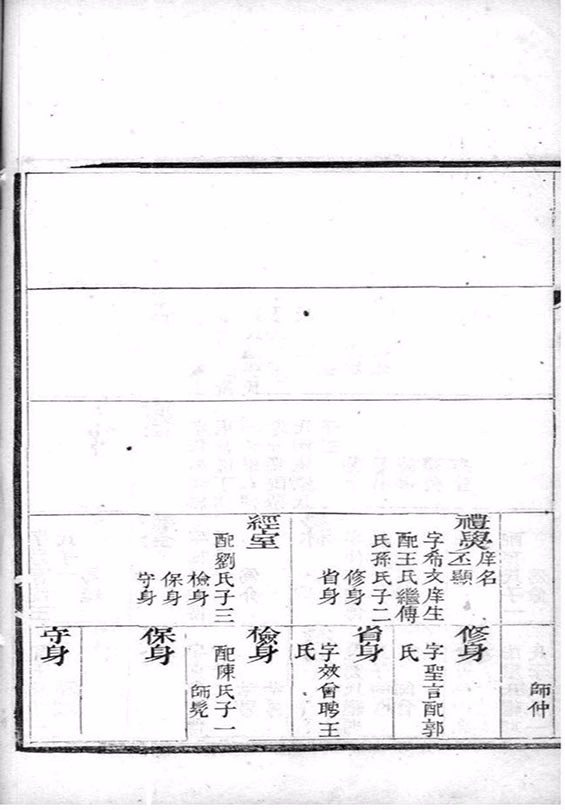 禮
庠名
丕顯
字希文庠生
配王氏繼傅
氏孫氏子二
修身
省身
經室
配劉氏子三
檢身
保身
守身
師仲
修身
字聖言配郭
氏
省身
字效曾聘王
氏
檢身
配陳氏子一
師
保身
守身